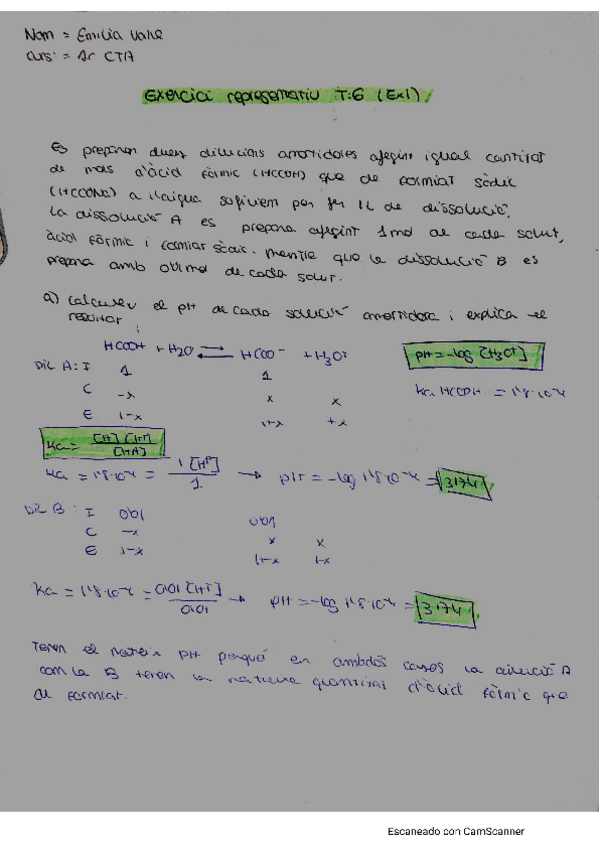 Nom = Emilia Valle
Curs: = 1r CTA
Exercici representatiu T:6 (Ex1)
Es preparen dues dilucions amortidores afegint igual cantitat
de mols d'àcid fòrmic (HCOOH) que de formiat sòdic
(HCOONa) a l'aigua suficient per fer 1L de dissolució.
La dissolució A es prepara afegint 1mol de cada solut,
àcid fòrmic i formiat sòdic. Mentre que la dissolució B es
prepara amb 0'01mol de cada solut.
a) Calculeu el pH de cada solució amortidora i explica el
resultat
HCOOH + H2O ⇌ HCOO- + H3O+
pH = -log [H3O+]
Dil A: I 1 1
Ka HCOOH = 1'8·10-4
C -x x x
E 1-x 1+x +x
Ka = [H] [H+] / [HA]
Ka = 1'8·10-4 = 1 [H+] / 1 → pH = -log 1'8·10-4 = 3'74
Dil B: I 0'01 0'01
C -x x x
E 1-x 1+x 1-x
Ka = 1'8·10-4 = 0,01 [H+] / 0,01 → pH = -log 1'8·10-4 = 3'74
Tenen el mateix pH perquè en ambdós casos la dilució A
com la B tenen la mateixa quantitat d'àcid fòrmic que
de formiat.
Escaneado con CamScanner